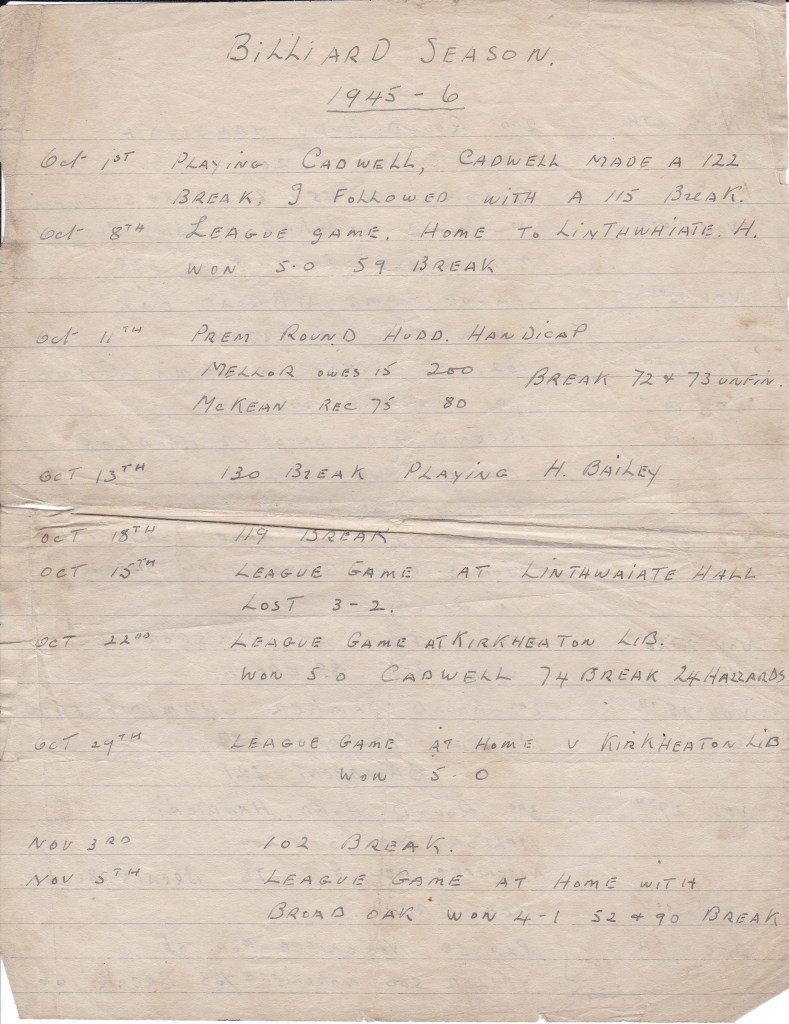 BILLIARD SEASON.
1945-6
Oct 1ST PLAYING CADWELL, CADWELL MADE A 122
BREAK, I FOLLOWED WITH A 115 BREAK.
Oct 8TH LEAGUE GAME. HOME TO LINTHWHIATE. H.
WON 5.0 59 BREAK
Oct 11TH PREM ROUND HUDD. HANDICAP
MELLOR OWES 15 200 BREAK 72 & 73 UNFIN.
McKEAN REC 75 80
OCT 13TH 130 BREAK PLAYING H. BAILEY
OCT 18TH 119 BREAK
OCT 15TH LEAGUE GAME AT LINTHWAIATE HALL
LOST 3-2.
OCT 22ND LEAGUE GAME AT KIRKHEATON LIB.
WON 5.0 CADWELL 74 BREAK 24 HAZZARDS
OCT 29TH LEAGUE GAME AT HOME V KIRKHEATON LIB
WON 5.0
NOV 3RD 102 BREAK.
NOV 5TH LEAGUE GAME AT HOME WITH
BROAD OAK WON 4-1 52 & 90 BREAK